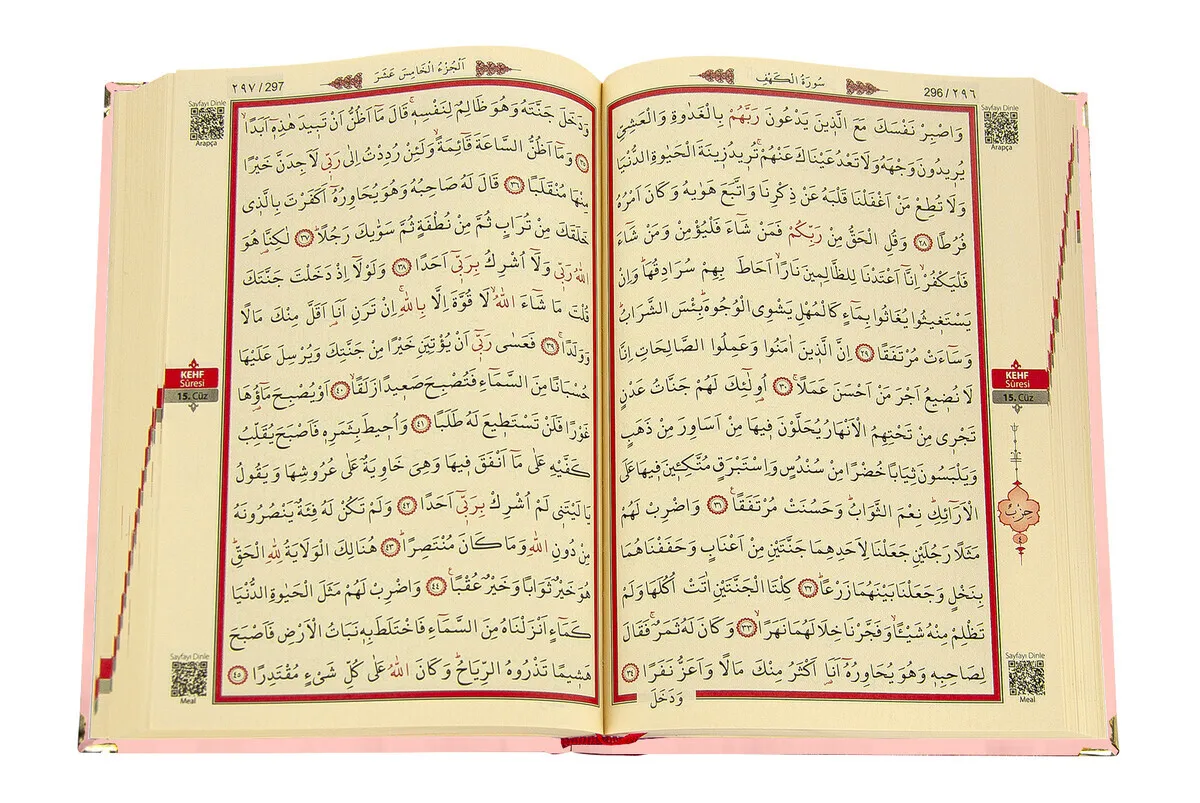 سُورَةُ الْكَهْفِ
296 / ٢٩٦
Sayfayı Dinle
Arapça
وَاصْبِرْ نَفْسَكَ مَعَ الَّذٖينَ يَدْعُونَ رَبَّهُمْ بِالْغَدٰوةِ وَالْعَشِيِّ
يُرٖيدُونَ وَجْهَهُ وَلَا تَعْدُ عَيْنَاكَ عَنْهُمْۚ تُرٖيدُ زٖينَةَ الْحَيٰوةِ الدُّنْيَا
وَلَا تُطِعْ مَنْ اَغْفَلْنَا قَلْبَهُ عَنْ ذِكْرِنَا وَاتَّبَعَ هَوٰيهُ وَكَانَ اَمْرُهُ
فُرُطًا ٢٨ وَقُلِ الْحَقُّ مِنْ رَبِّكُمْ فَمَنْ شَٓاءَ فَلْيُؤْمِنْ وَمَنْ شَٓاءَ
فَلْيَكْفُرْۙ اِنَّٓا اَعْتَدْنَا لِلظَّالِمٖينَ نَارًاۙ اَحَاطَ بِهِمْ سُرَادِقُهَاۜ وَاِنْ
يَسْتَغٖيثُوا يُغَاثُوا بِمَٓاءٍ كَالْمُهْلِ يَشْوِى الْوُجُوهَۜ بِئْسَ الشَّرَابُۜ
وَسَٓاءَتْ مُرْتَفَقًا ٢٩ اِنَّ الَّذٖينَ اٰمَنُوا وَعَمِلُوا الصَّالِحَاتِ اِنَّا
لَا نُضٖيعُ اَجْرَ مَنْ اَحْسَنَ عَمَلًاۚ ٣٠ اُولٰٓئِكَ لَهُمْ جَنَّاتُ عَدْنٍ
تَجْرٖى مِنْ تَحْتِهِمُ الْاَنْهَارُ يُحَلَّوْنَ فٖيهَا مِنْ اَسَاوِرَ مِنْ ذَهَبٍ
وَيَلْبَسُونَ ثِيَابًا خُضْرًا مِنْ سُنْدُسٍ وَاِسْتَبْرَقٍ مُتَّكِـٖٔينَ فٖيهَا عَلَى
الْاَرَٓائِكِۜ نِعْمَ الثَّوَابُۜ وَحَسُنَتْ مُرْتَفَقًاۚ ٣١ وَاضْرِبْ لَهُمْ
مَثَلًا رَجُلَيْنِ جَعَلْنَا لِاَحَدِهِمَا جَنَّتَيْنِ مِنْ اَعْنَابٍ وَحَفَفْنَاهُمَا
بِنَخْلٍ وَجَعَلْنَا بَيْنَهُمَا زَرْعًاۜ ٣٢ كِلْتَا الْجَنَّتَيْنِ اٰتَتْ اُكُلَهَا وَلَمْ
تَظْلِمْ مِنْهُ شَيْـًٔاۙ وَفَجَّرْنَا خِلَالَهُمَا نَهَرًاۙ ٣٣ وَكَانَ لَهُ ثَمَرٌۚ فَقَالَ
لِصَاحِبِهٖ وَهُوَ يُحَاوِرُهُٓ اَنَا۬ اَكْثَرُ مِنْكَ مَالًا وَاَعَزُّ نَفَرًا ٣٤
وَدَخَلَ
KEHF
Sûresi
15. Cüz
حزب
٤
Sayfayı Dinle
Meal
اَلْجُزْءُ الْخَامِسَ عَشَرَ
٢٩٧ / 297
Sayfayı Dinle
Arapça
وَدَخَلَ جَنَّتَهُ وَهُوَ ظَالِمٌ لِنَفْسِهٖۚ قَالَ مَٓا اَظُنُّ اَنْ تَبٖيدَ هٰذِهٖٓ اَبَدًاۙ
٣٥ وَمَٓا اَظُنُّ السَّاعَةَ قَٓائِمَةً وَلَئِنْ رُدِدْتُ اِلٰى رَبّٖى لَاَجِدَنَّ خَيْرًا
مِنْهَا مُنْقَلَبًا ٣٦ قَالَ لَهُ صَاحِبُهُ وَهُوَ يُحَاوِرُهُٓ اَكَفَرْتَ بِالَّذٖى
خَلَقَكَ مِنْ تُرَابٍ ثُمَّ مِنْ نُطْفَةٍ ثُمَّ سَوّٰيكَ رَجُلًاۜ ٣٧ لٰكِنَّا۬ هُوَ
اللّٰهُ رَبّٖى وَلَٓا اُشْرِكُ بِرَبّٖٓى اَحَدًا ٣٨ وَلَوْلَٓا اِذْ دَخَلْتَ جَنَّتَكَ
قُلْتَ مَا شَٓاءَ اللّٰهُۙ لَا قُوَّةَ اِلَّا بِاللّٰهِۚ اِنْ تَرَنِ اَنَا۬ اَقَلَّ مِنْكَ مَالًا
وَوَلَدًاۚ ٣٩ فَعَسٰى رَبّٖٓى اَنْ يُؤْتِيَنِ خَيْرًا مِنْ جَنَّتِكَ وَيُرْسِلَ عَلَيْهَا
حُسْبَانًا مِنَ السَّمَٓاءِ فَتُصْبِحَ صَعٖيدًا زَلَقًاۙ ٤٠ اَوْ يُصْبِحَ مَٓاؤُ۬هَا
غَوْرًا فَلَنْ تَسْتَطٖيعَ لَهُ طَلَبًا ٤١ وَاُحٖيطَ بِثَمَرِهٖ فَاَصْبَحَ يُقَلِّبُ
كَفَّيْهِ عَلٰى مَٓا اَنْفَقَ فٖيهَا وَهِىَ خَاوِيَةٌ عَلٰى عُرُوشِهَا وَيَقُولُ
يَا لَيْتَنٖى لَمْ اُشْرِكْ بِرَبّٖٓى اَحَدًا ٤٢ وَلَمْ تَكُنْ لَهُ فِئَةٌ يَنْصُرُونَهُ
مِنْ دُونِ اللّٰهِ وَمَا كَانَ مُنْتَصِرًاۜ ٤٣ هُنَالِكَ الْوَلَايَةُ لِلّٰهِ الْحَقِّۜ
هُوَ خَيْرٌ ثَوَابًا وَخَيْرٌ عُقْبًاۚ ٤٤ وَاضْرِبْ لَهُمْ مَثَلَ الْحَيٰوةِ الدُّنْيَا
كَمَٓاءٍ اَنْزَلْنَاهُ مِنَ السَّمَٓاءِ فَاخْتَلَطَ بِهٖ نَبَاتُ الْاَرْضِ فَاَصْبَحَ
هَشٖيمًا تَذْرُوهُ الرِّيَاحُۜ وَكَانَ اللّٰهُ عَلٰى كُلِّ شَیْءٍ مُقْتَدِرًا ٤٥
KEHF
Sûresi
15. Cüz
Sayfayı Dinle
Meal